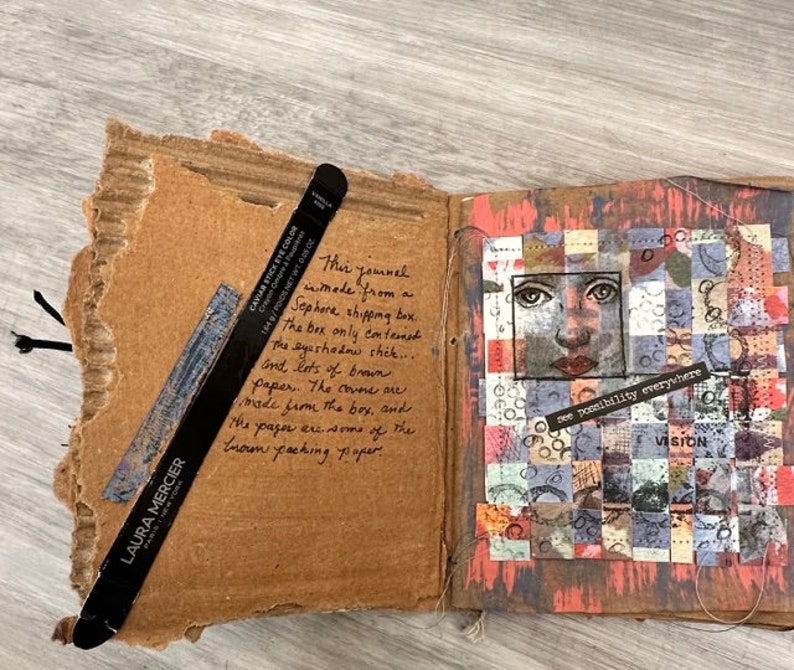 VANILLA
KISS
CAVIAR STICK EYE COLOR
Crayon Ombre à Paupières
1.64 g / POIDS NET WT. 0.05 OZ.
LAURA MERCIER
PARIS | NEW YORK
This journal
is made from a
Sephora shipping box.
The box only contained
the eyeshadow stick...
and lots of brown
paper. The covers are
made from the box, and
the pages are some of the
brown packing paper.
see possibility everywhere
VISION